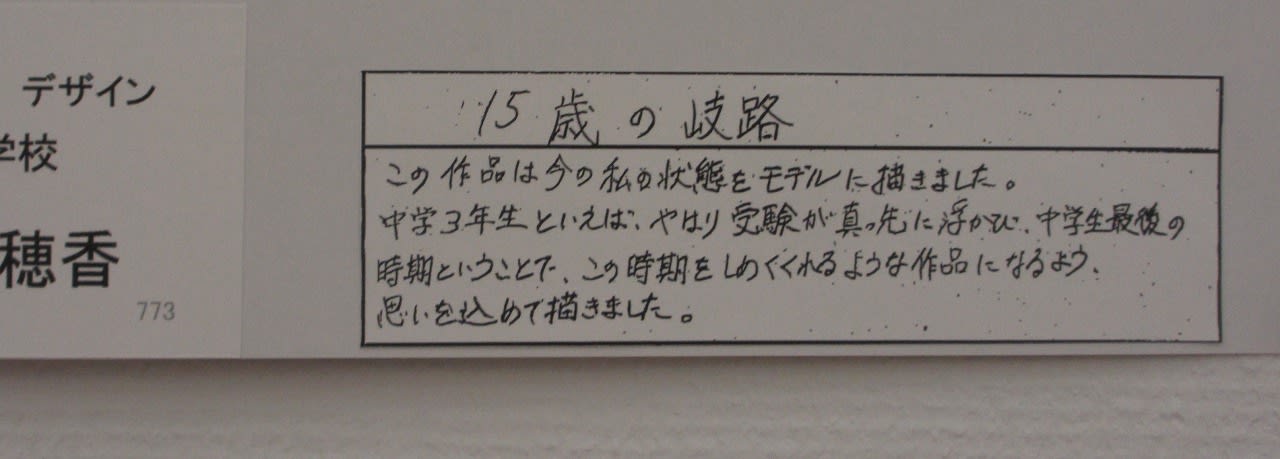 デザイン
学校
穂香
773
15歳の岐路
この作品は今の私の状態をモデルに描きました。
中学3年生といえば、やはり受験が真っ先に浮かび、中学生最後の
時期ということで、この時期をしめくくれるような作品になるよう、
思いを込めて描きました。